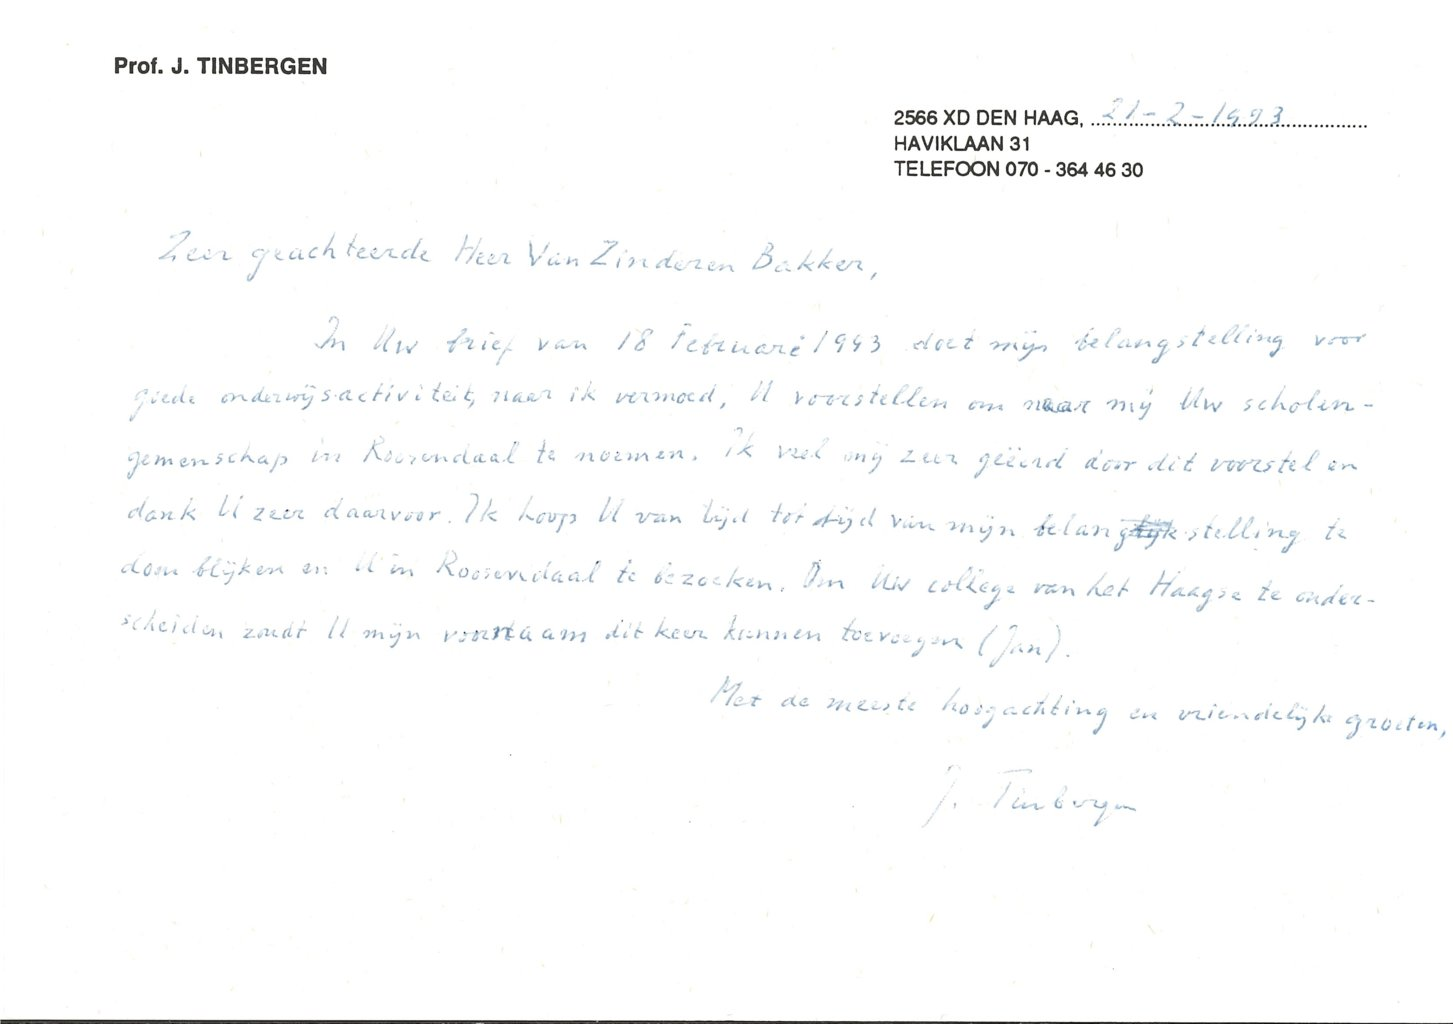 Prof. J. TINBERGEN
2566 XD DEN HAAG, 21-2-1993
HAVIKLAAN 31
TELEFOON 070 - 364 46 30
Zeer geachteerde Heer Van Zinderen Bakker,
In Uw brief van 18 Februari 1993 doet mijn belangstelling voor
goede onderwijsactiviteit, naar ik vermoed, U voorstellen om naar mij Uw scholen-
gemenschap in Roosendaal te noemen. Ik voel mij zeer geëerd door dit voorstel en
dank U zeer daarvoor. Ik hoop U van tijd tot tijd van mijn belangstelling te
doen blijken en U in Roosendaal te bezoeken. Om Uw college van het Haagse te onder-
scheiden zoudt U mijn voornaam dit keer kunnen toevoegen (Jan).
Met de meeste hoogachting en vriendelijke groeten,
J. Tinbergen